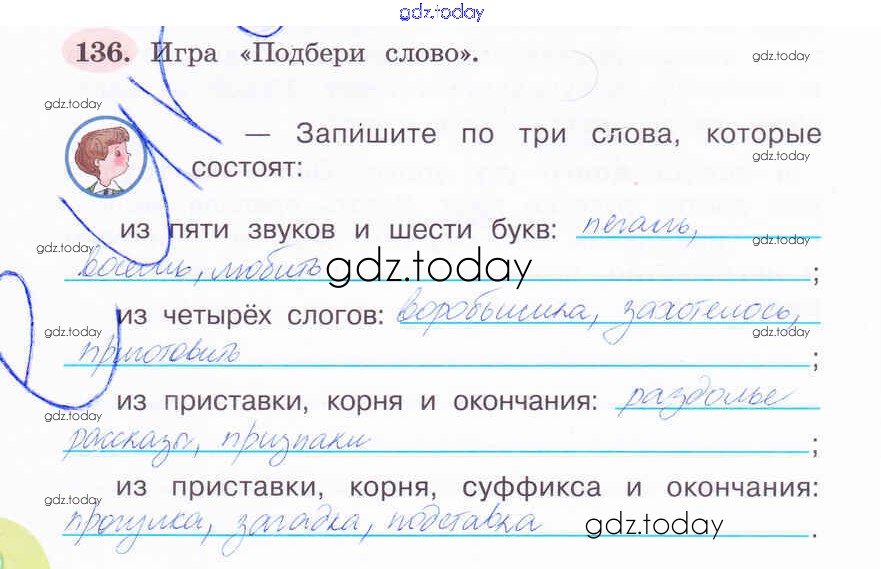 gdz.today
136. Игра «Подбери слово».
gdz.today
gdz.today
— Запишите по три слова, которые
gdz.today
состоят:
из пяти звуков и шести букв: печаль,
gdz.today
gdz.today
восемь, любить
gdz.today
;
из четырёх слогов: воробышка, захотелось,
gdz.today
gdz.today
приготовить ;
из приставки, корня и окончания: раздолье
gdz.today
gdz.today
рассказы, признаки ;
из приставки, корня, суффикса и окончания:
gdz.today
прогулка, загадка, подставка
gdz.today
.